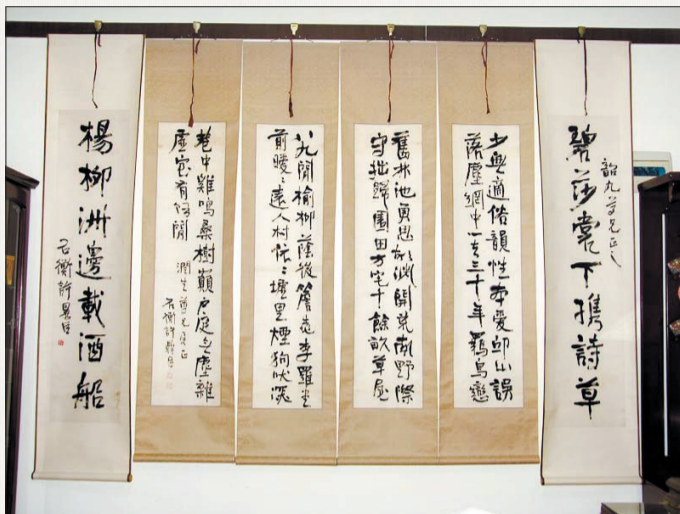 碧莎裳下携詩草
韶九尊兄正之
少無適俗韻性本愛邱山誤
落塵網中一去三十年羈鳥戀
舊林池魚思故淵開荒南野際
守拙歸園田方宅十餘畝草屋
八九間榆柳蔭後簷桃李羅堂
前曖〻遠人村依〻墟里煙狗吠深
巷中雞鳴桑樹顛戶庭無塵雜
虛室有餘閒
潤生尊兄正
石衡許
楊柳洲邊載酒船
石衡許